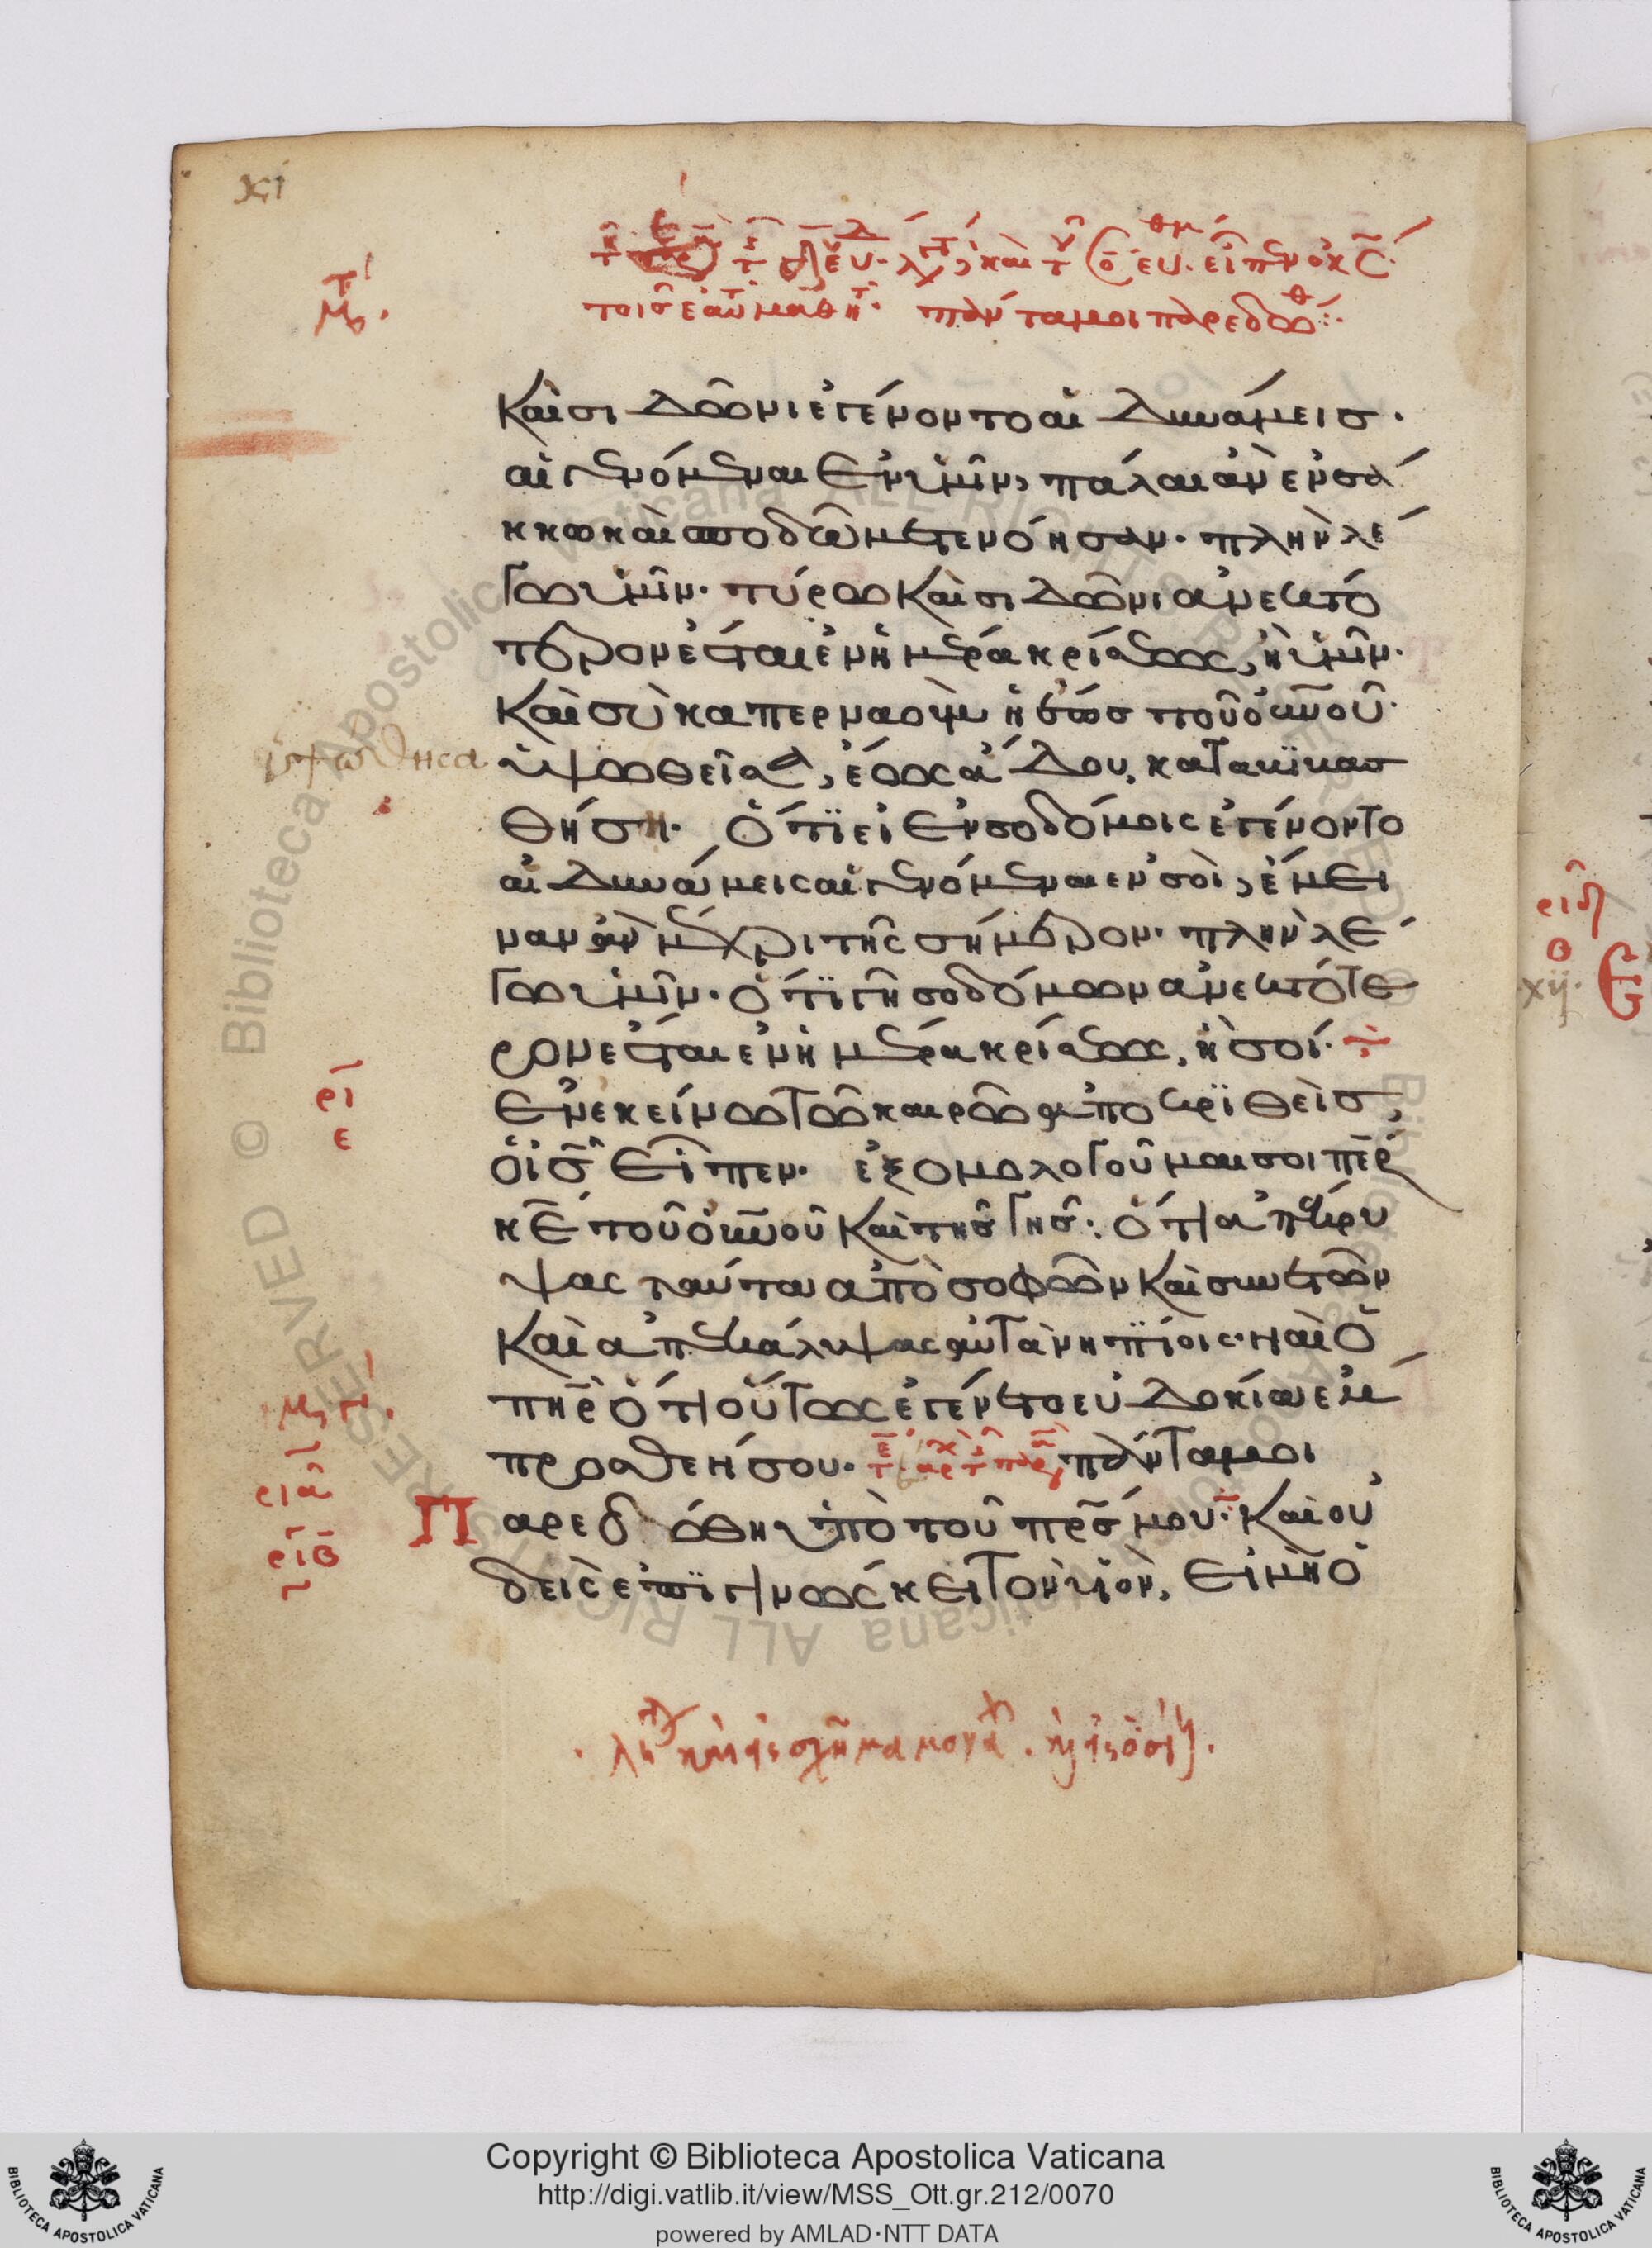 xi
εἶπεν ὁ κ̅ς̅
τοις ε αυ μαθη πάντα μοι παρεδόθ
καὶ σιδῶνι ἐγένοντο αἱ δυνάμεισ·
αἱ γενόμεναι ἐν ὑμῖν, πάλαι ἀν ἐν σά
κκω καὶ σποδῶ μετενόησαν· πλὴν λέ
γω ὑμῖν· τύρω καὶ σιδῶνι ἀνεκτό
τερον ἔσται ἐν ἡμέρα κρίσεως, ἢ ὑμῖν·
Καὶ σὺ καπερναοὺμ ἡ ἕωσ τοῦ ο̅υ̅ν̅ο̅ῦ
ὑψωθεῖσα, ἕως ἅδου, καταβιβασ
θήση· ὅτι εἰ ἐν σοδόμοις ἐγένοντο
αἱ δυνάμεις αἱ γενόμεναι ἐν σοὶ, ἔμει
ναν ἂν μέχρι τῆς σήμερον· πλὴν λέ
γω ὑμῖν· ὅτι γῆ σοδόμων ἀνεκτότε
ρον ἔσται ἐν ἡμέρα κρίσεως, ἢ σοί·
ρι
ε
Ἐν ἐκείνω τῶ καιρῶ ἀποκριθεὶσ,
ὁ ι̅σ̅ εἶπεν· ἐξομολογοῦμαι σοι π̅ε̅ρ̅
κ̅ε̅ τοῦ ο̅υ̅ν̅οῦ καὶ τῆσ γῆσ· ὅτι ἀπέκρυ
ψας ταῦτα ἀπὸ σοφῶν καὶ συνετῶν
καὶ ἀπεκάλυψας αὐτὰ νηπίοις· ναὶ ὁ
π̅η̅ρ̅ ὅτι οὕτως ἐγένετο εὐδοκία ἔμ
προσθέν σου· πάντα μοι
Παρεδόθη ὑπὸ τοῦ π̅ρ̅σ̅ μου· Καὶ οὐ
δεὶς ἐπιγινώσκει τὸν υἱὸν, εἰ μὴ ὁ
ριβ
xij.
Copyright © Biblioteca Apostolica Vaticana
http://digi.vatlib.it/view/MSS_Ott.gr.212/0070
powered by AMLAD·NTT DATA
BIBLIOTECA APOSTOLICA VATICANA
BIBLIOTECA APOSTOLICA VATICANA